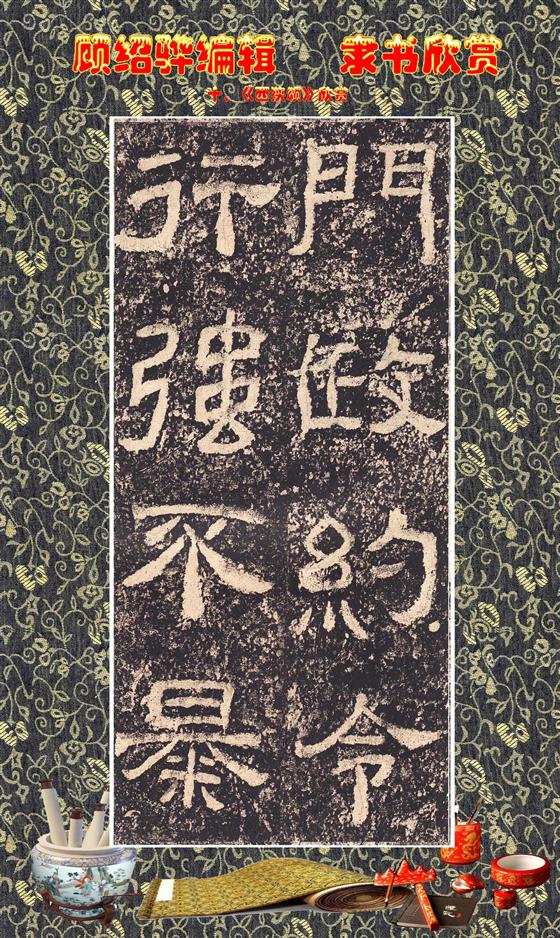 顾绍骅编辑 隶书欣赏
十、《西狭颂》欣赏
門政約令
行强不暴